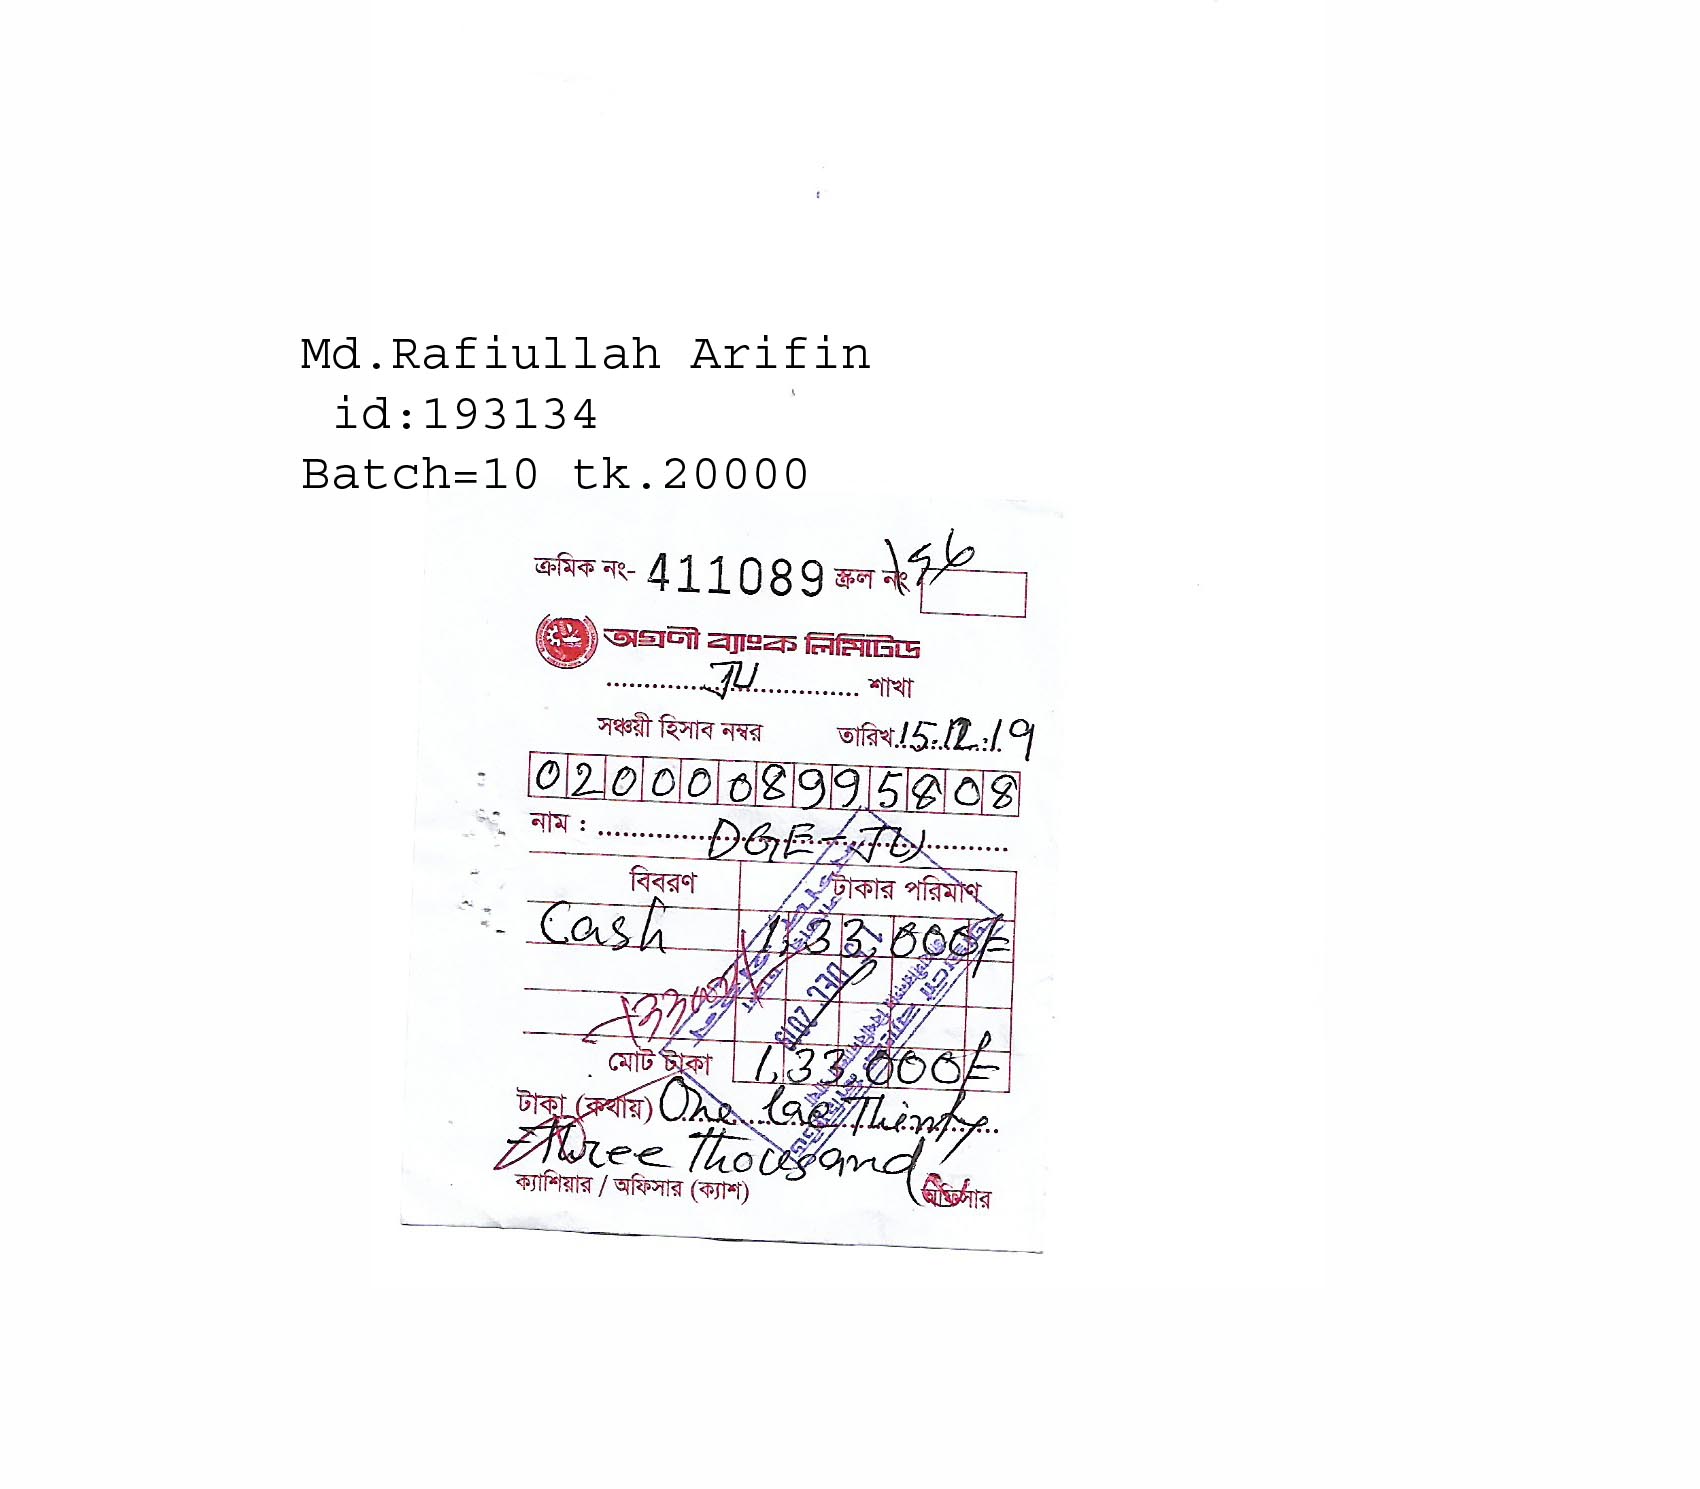 Md.Rafiullah Arifin
id:193134
Batch=10 tk.20000
ক্রমিক নং- 411089 স্ক্রল নং
অগ্রণী ব্যাংক লিমিটেড
JU শাখা
সঞ্চয়ী হিসাব নম্বর তারিখ 15.12.19
0200008995808
নাম : DGE-JU
বিবরণ টাকার পরিমাণ
Cash 1,33,000/=
15 DEC 2019
মোট টাকা 1,33,000/=
টাকা (কথায়) One lac Thirty
Three Thousand
ক্যাশিয়ার / অফিসার (ক্যাশ) অফিসার